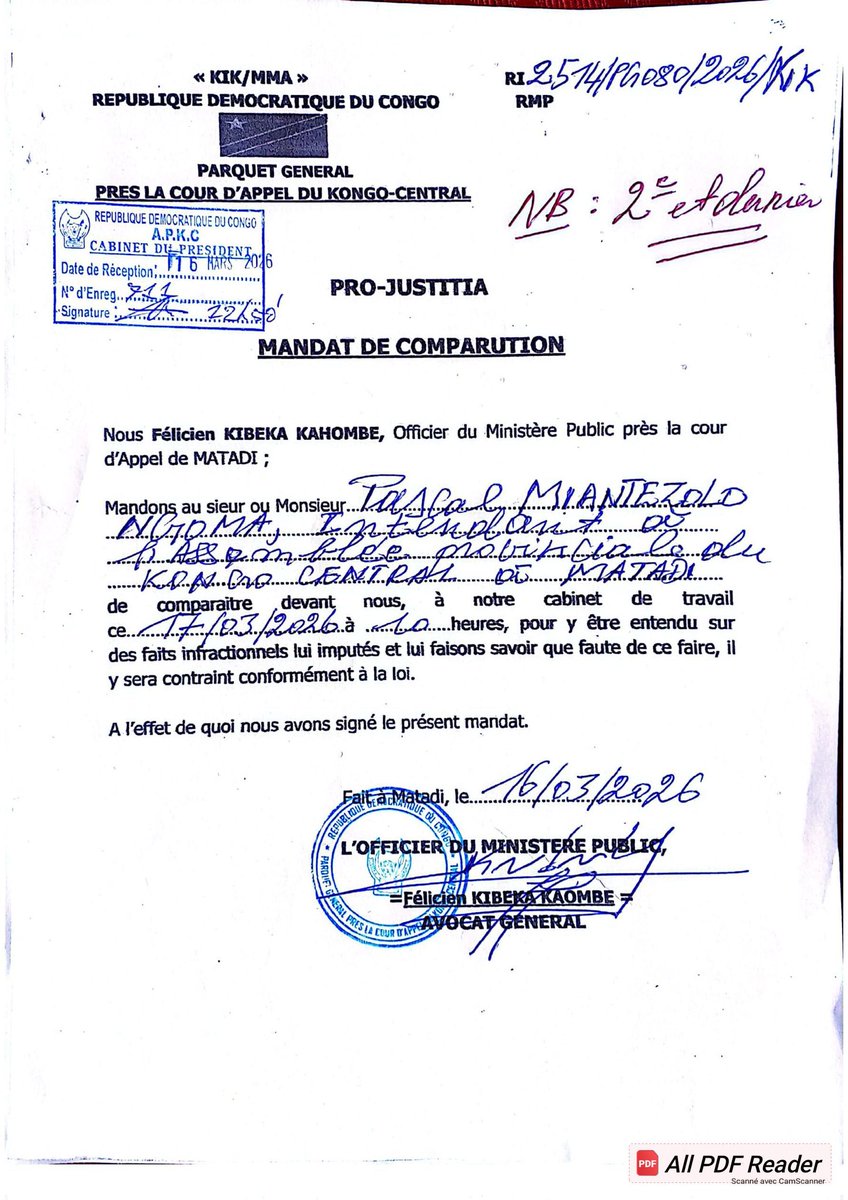 « KIK/MMA »
REPUBLIQUE DEMOCRATIQUE DU CONGO
RI 2514/PG080/2026/KIK
RMP
PARQUET GENERAL
PRES LA COUR D'APPEL DU KONGO-CENTRAL
NB : 2e et dernier
REPUBLIQUE DEMOCRATIQUE DU CONGO
A.P.K.C
CABINET DU PRESIDENT
Date de Réception: 16 MARS 2026
N° d'Enreg. 711
Signature : 12h50'
PRO-JUSTITIA
MANDAT DE COMPARUTION
Nous Félicien KIBEKA KAHOMBE, Officier du Ministère Public près la cour
d'Appel de MATADI ;
Mandons au sieur ou Monsieur Pascal MIANTEZOLO
NGOMA, Intendant à
l'Assemblée provinciale du
KONGO CENTRAL à MATADI
de comparaître devant nous, à notre cabinet de travail
ce 17/03/2026 à 10 heures, pour y être entendu sur
des faits infractionnels lui imputés et lui faisons savoir que faute de ce faire, il
y sera contraint conformément à la loi.
A l'effet de quoi nous avons signé le présent mandat.
Fait à Matadi, le 16/03/2026
L'OFFICIER DU MINISTERE PUBLIC,
=Félicien KIBEKA KAOMBE =
AVOCAT GENERAL
REPUBLIQUE DEMOCRATIQUE DU CONGO
PARQUET GENERAL PRES LA COUR D'APPEL KONGO CENTRAL
PDF All PDF Reader
Scanné avec CamScanner